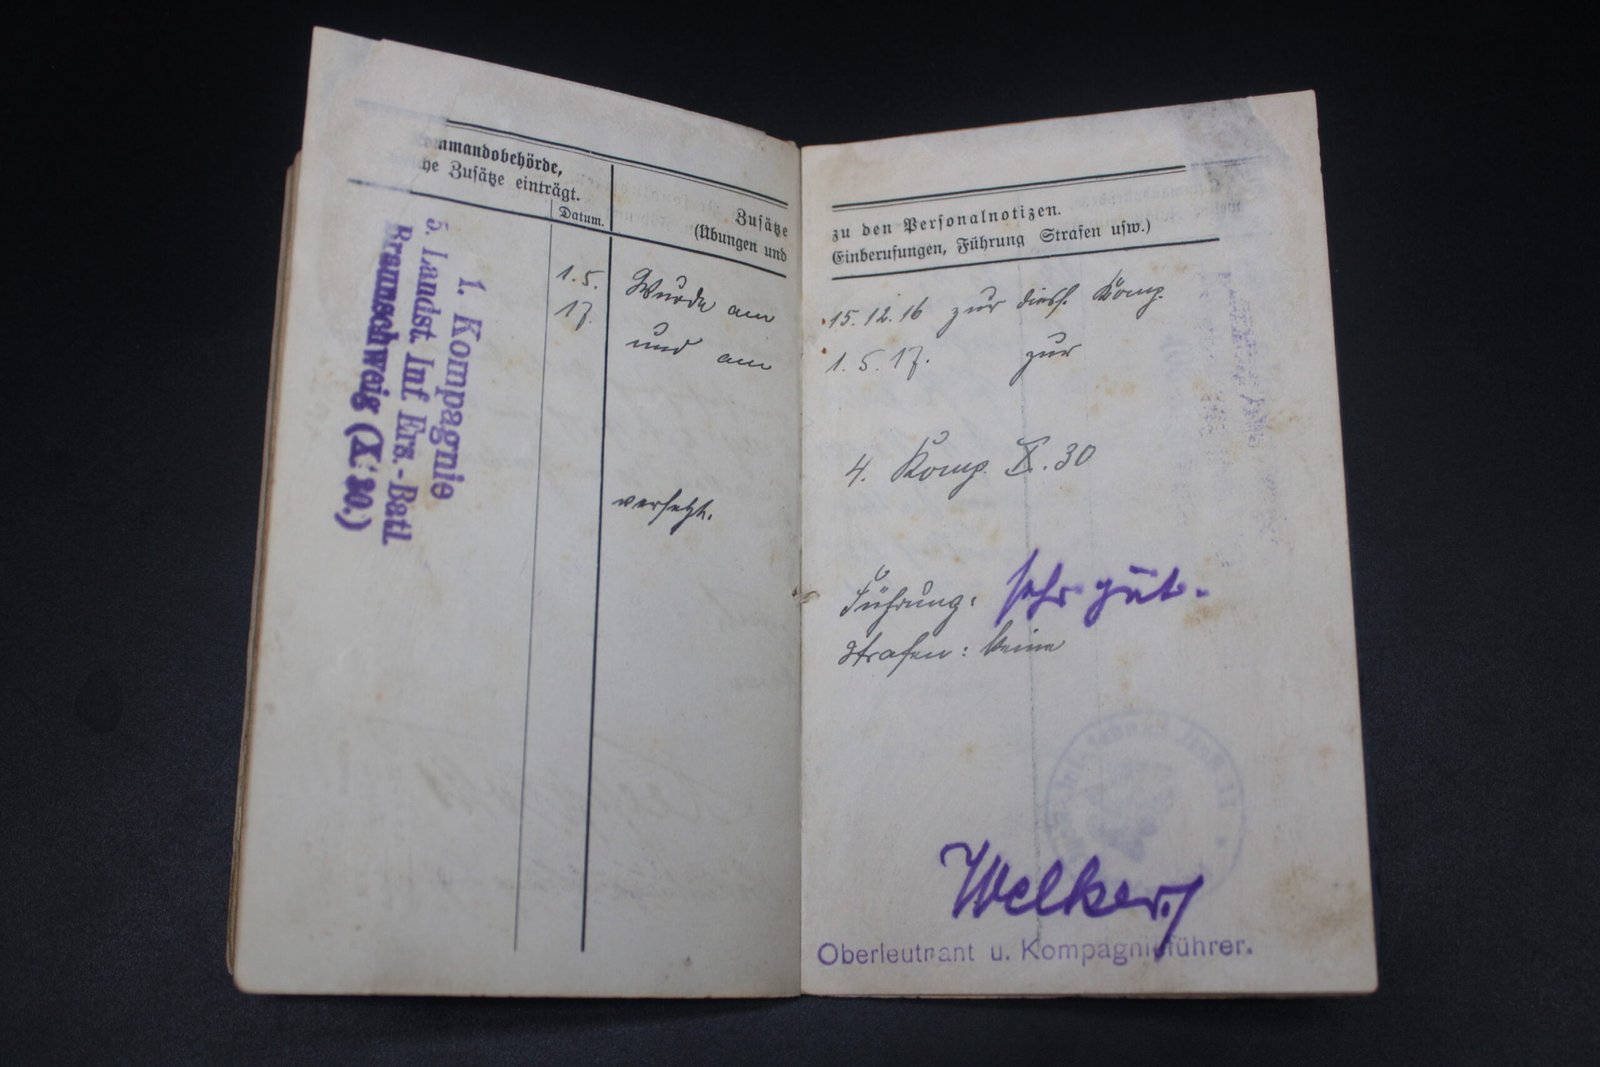 ommandobehörde,
he Zusätze einträgt.
Datum.
Zusätze
(Übungen und
1. Kompagnie
5. Landst. Inf. Ers.-Batl
Braunschweig (X 30.)
1.5.
17.
Wurde am
und am
versetzt.
zu den Personalnotizen.
Einberufungen, Führung Strafen usw.)
15.12.16 zur diess. Komp.
1.5.17. zur
4. Komp. X.30
Führung: sehr gut.
Strafen: keine
Welker
Oberleutnant u. Kompagnieführer.